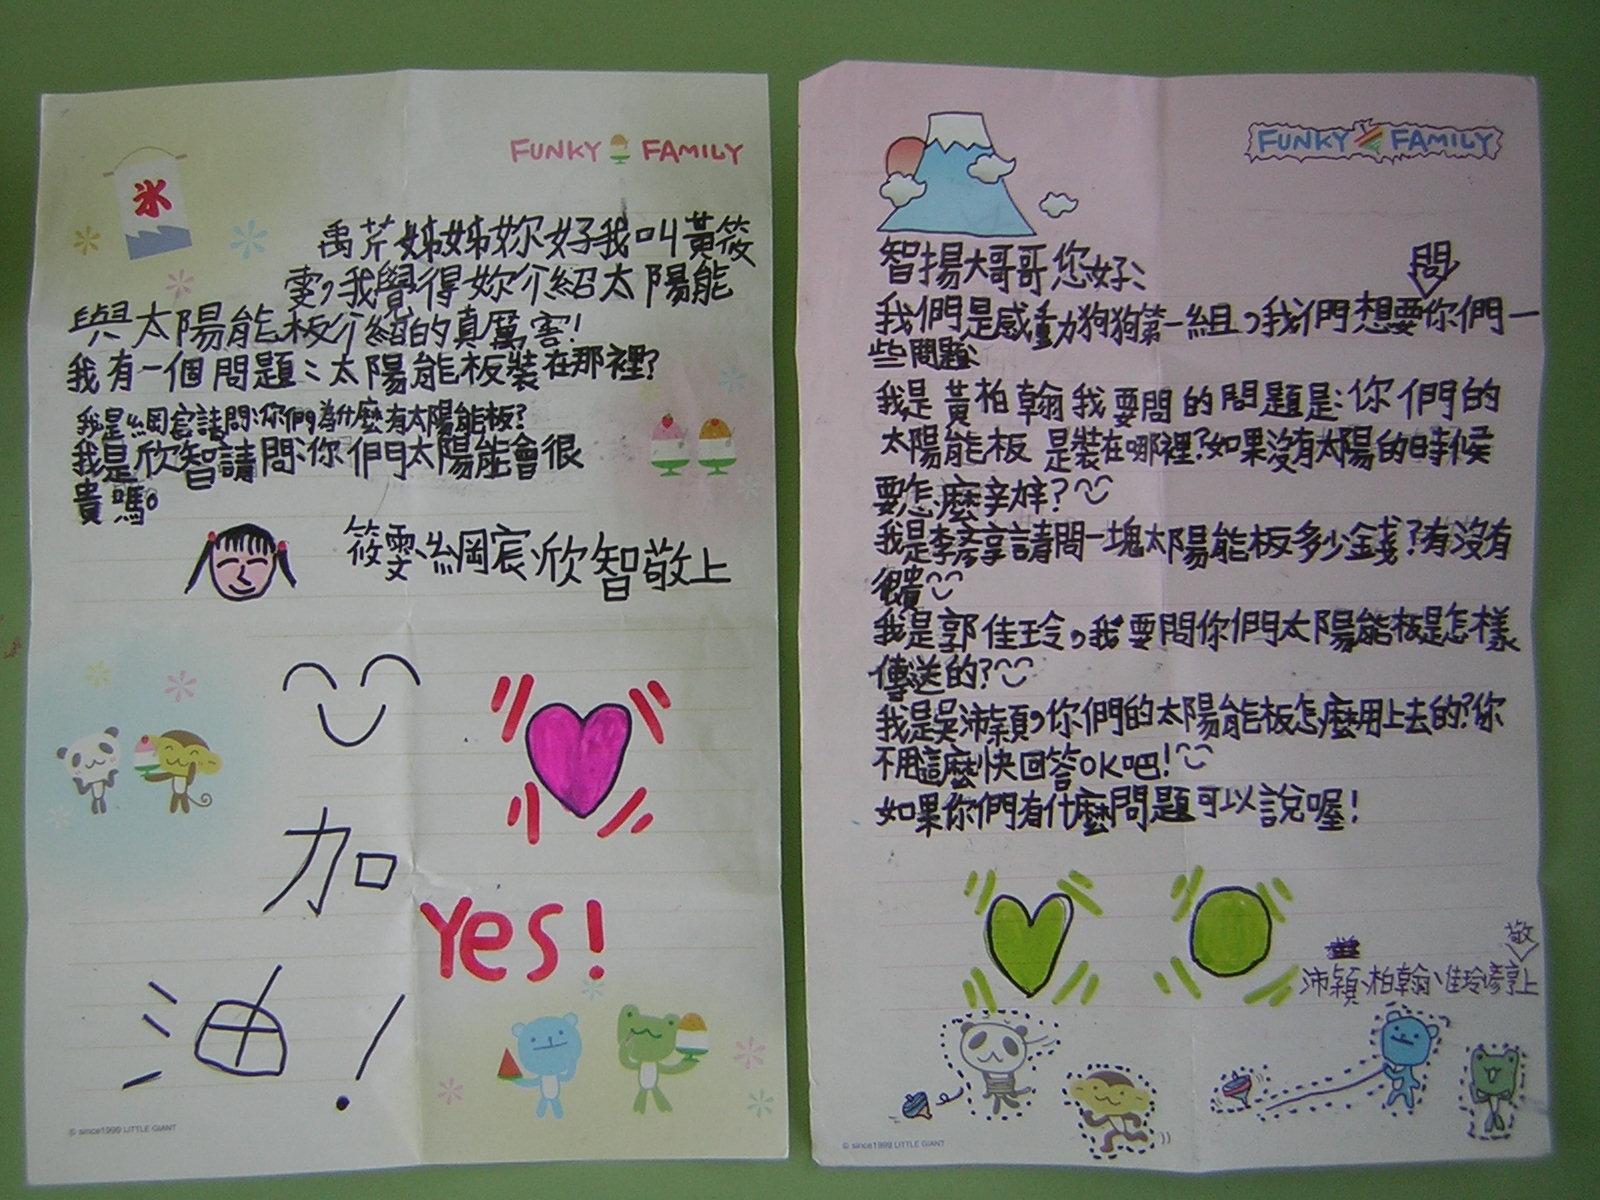 FUNKY FAMILY
氷
禹芹姊姊妳好我叫黃筱
雯,我覺得妳介紹太陽能
與太陽能板介紹的真厲害!
我有一個問題:太陽能板裝在那裡?
我是綱宸請問:你們為什麼有太陽能板?
我是欣智請問:你們太陽能會很
貴嗎。
筱雯、綱宸、欣智敬上
加
Yes!
油!
© since1999 LITTLE GIANT
FUNKY FAMILY
智揚大哥哥您好:
問
我們是感動狗狗第一組,我們想要你們一
些問題:
我是黃柏翰我要問的問題是:你們的
太陽能板是裝在哪裡?如果沒有太陽的時候
要怎麼辛辦?
我是李彥享請問一塊太陽能板多少金錢?有沒有
很貴
我是郭佳玲,我要問你們太陽能板是怎樣
傳送的?
我是吳沛穎,你們的太陽能板怎麼用上去的?你
不用這麼快回答OK吧!
如果你們有什麼問題可以說喔!
敬
沛穎、柏翰、佳玲彥享上
© since1999 LITTLE GIANT